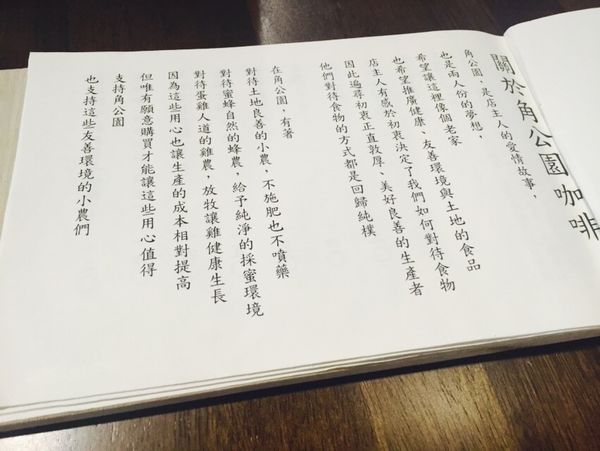 關於角公園咖啡
角公園，是店主人的愛情故事，
也是兩人份的夢想，
希望讓這裡像個老家
也希望推廣健康、友善環境與土地的食品
店主人有感於初衷決定了我們如何對待食物
因此遍尋初衷正直敦厚、美好良善的生產者
他們對待食物的方式都是回歸純樸
在角公園，有著
對待土地良善的小農，不施肥也不噴藥
對待蜜蜂自然的蜂農，給予純淨的採蜜環境
對待蛋雞人道的雞農，放牧讓雞健康生長
因為這些用心也讓生產的成本相對提高
但唯有願意購買才能讓這些用心值得
支持角公園
也支持這些友善環境的小農們